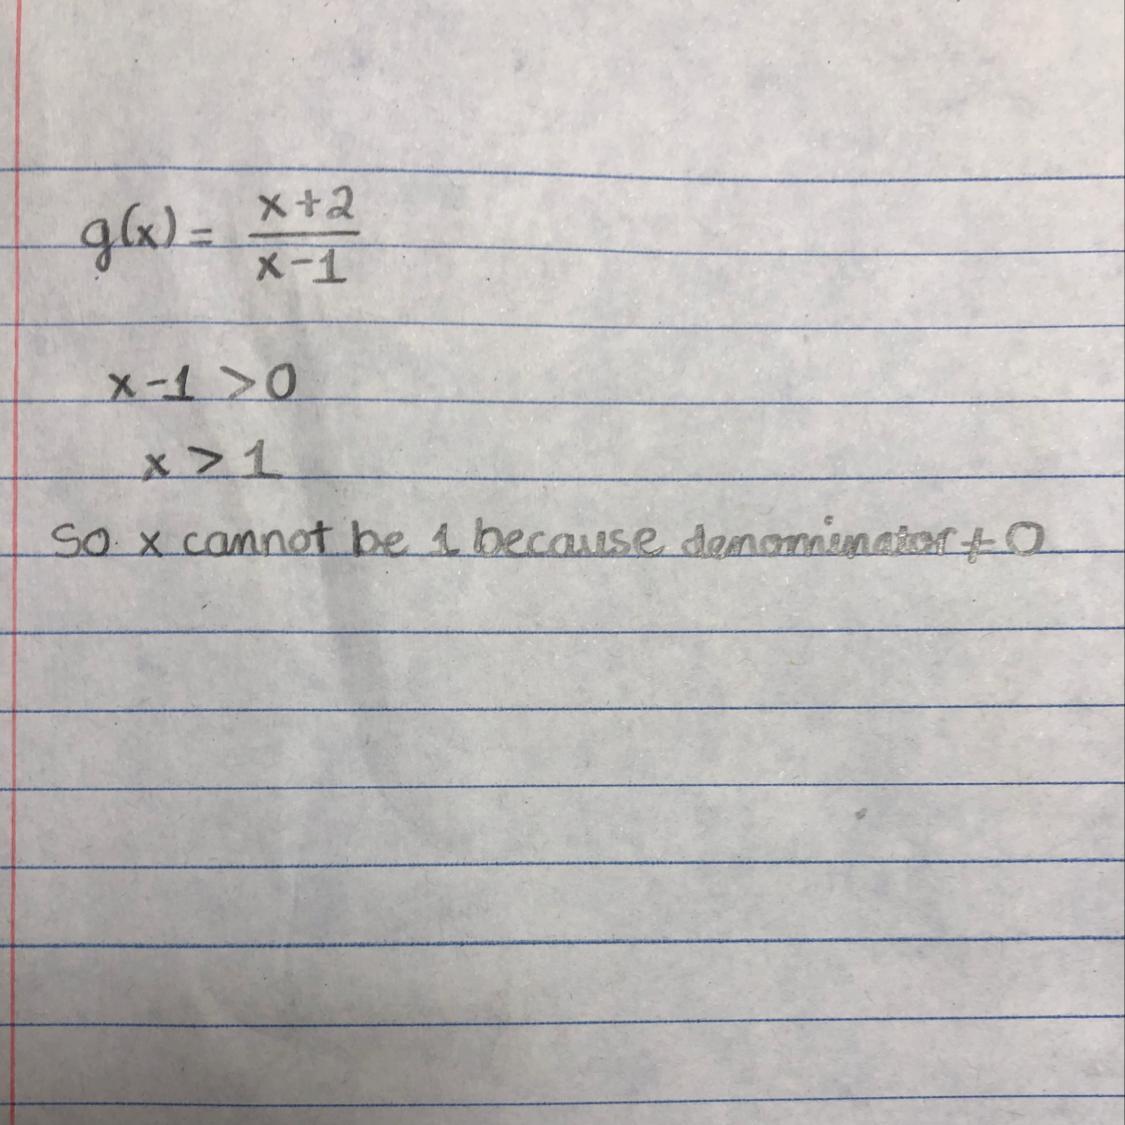 g(x) = \frac{x+2}{x-1}
x-1 > 0
x > 1
So x cannot be 1 because denominator ≠ 0